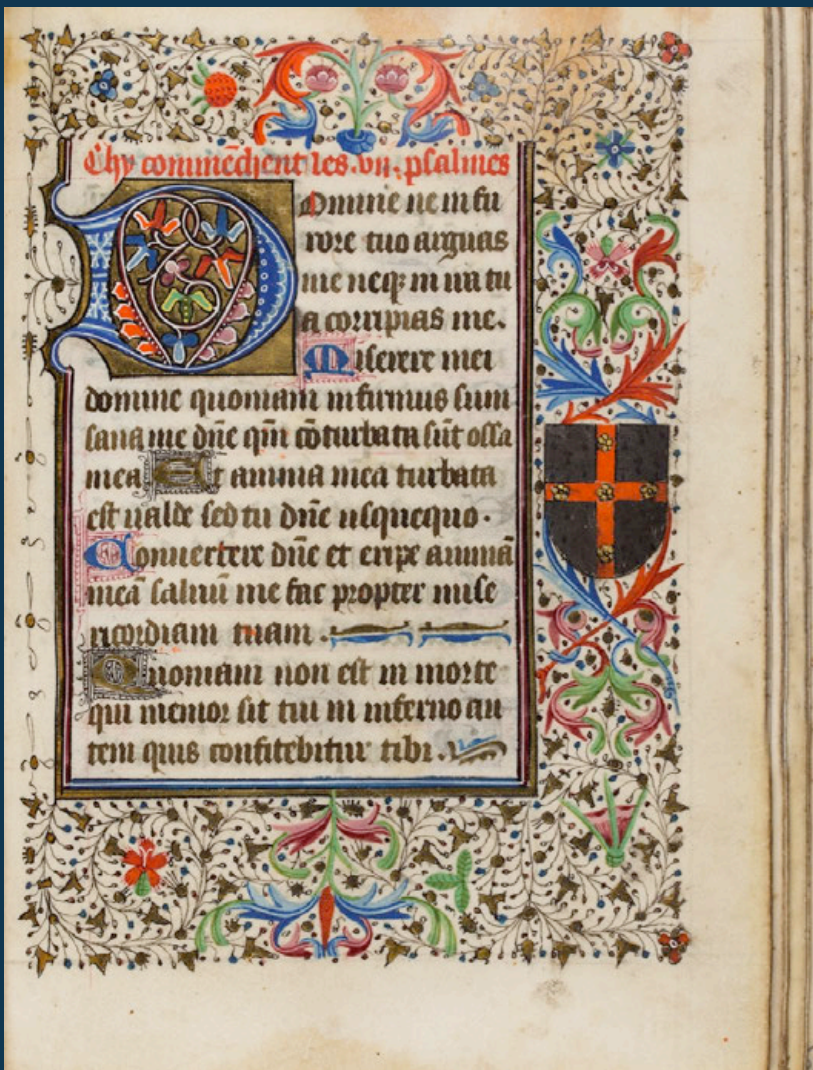 Chy commēchent les .vii. psalmes
Domine ne in fu
rore tuo arguas
me neq̄ in ira tu
a corripias me.
Miserere mei
domine quoniam infirmus sum
sana me dn̄e qm̄ cōturbata sūt ossa
mea Et anima mea turbata
est ualde sed tu dn̄e usquequo.
Conuertere dn̄e et eripe animā
meā saluū me fac propter mise
ricordiam tuam.
Quoniam non est in morte
qui memor sit tui in inferno au
tem quis confitebitur tibi.